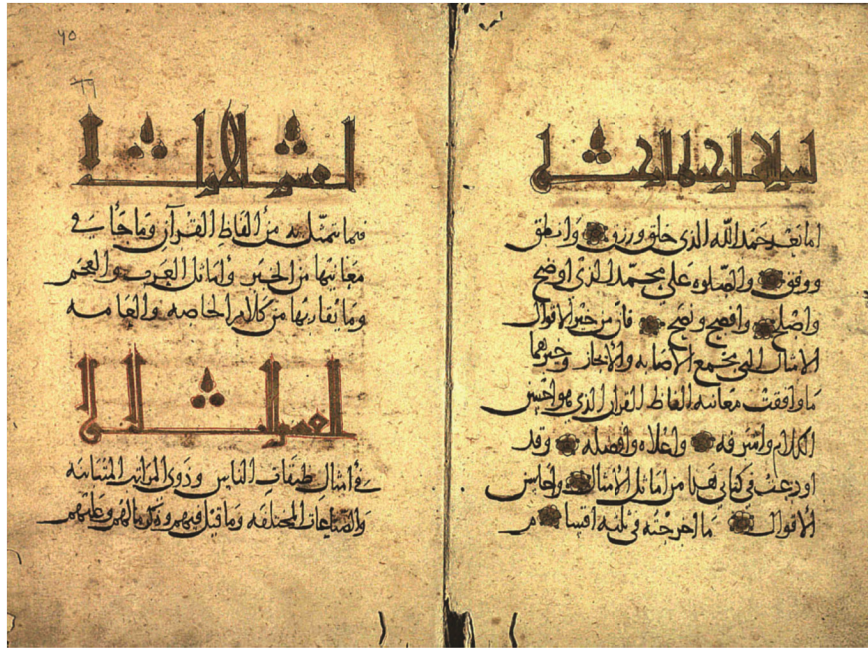 بسم الله الرحمن الرحيم
اما بعد حمد الله الذى خلق ورزق وانطق
ووفق والصلوه على محمد الذى اوضح
واصلح وافصح ونصح فان من خير الاقوال
الامثال التى تجمع الاصابه والايجاز وخيرهما
ما وافقت معانيه الفاظ القرآن الذى هو احسن
الكلام واشرفه واعلاه وافضله وقد
اودعت فى كتابى هذا من اماثل الامثال واحاسن
الاقوال ما اخرجته فى ثلثه اقسام
٦٥
٦٩
القسم الاول
فيما يتمثل به من الفاظ القرآن وما جآ فى
معانيها من الخبر وامثال العرب والعجم
وما يقاربها من كلام الخاصه والعامه
القسم الثانى
فى امثال طبقات الناس وذوى المراتب المتباينه
والصناعات المختلفه وما قيل فيهم وذكر ما لهم وعليهم